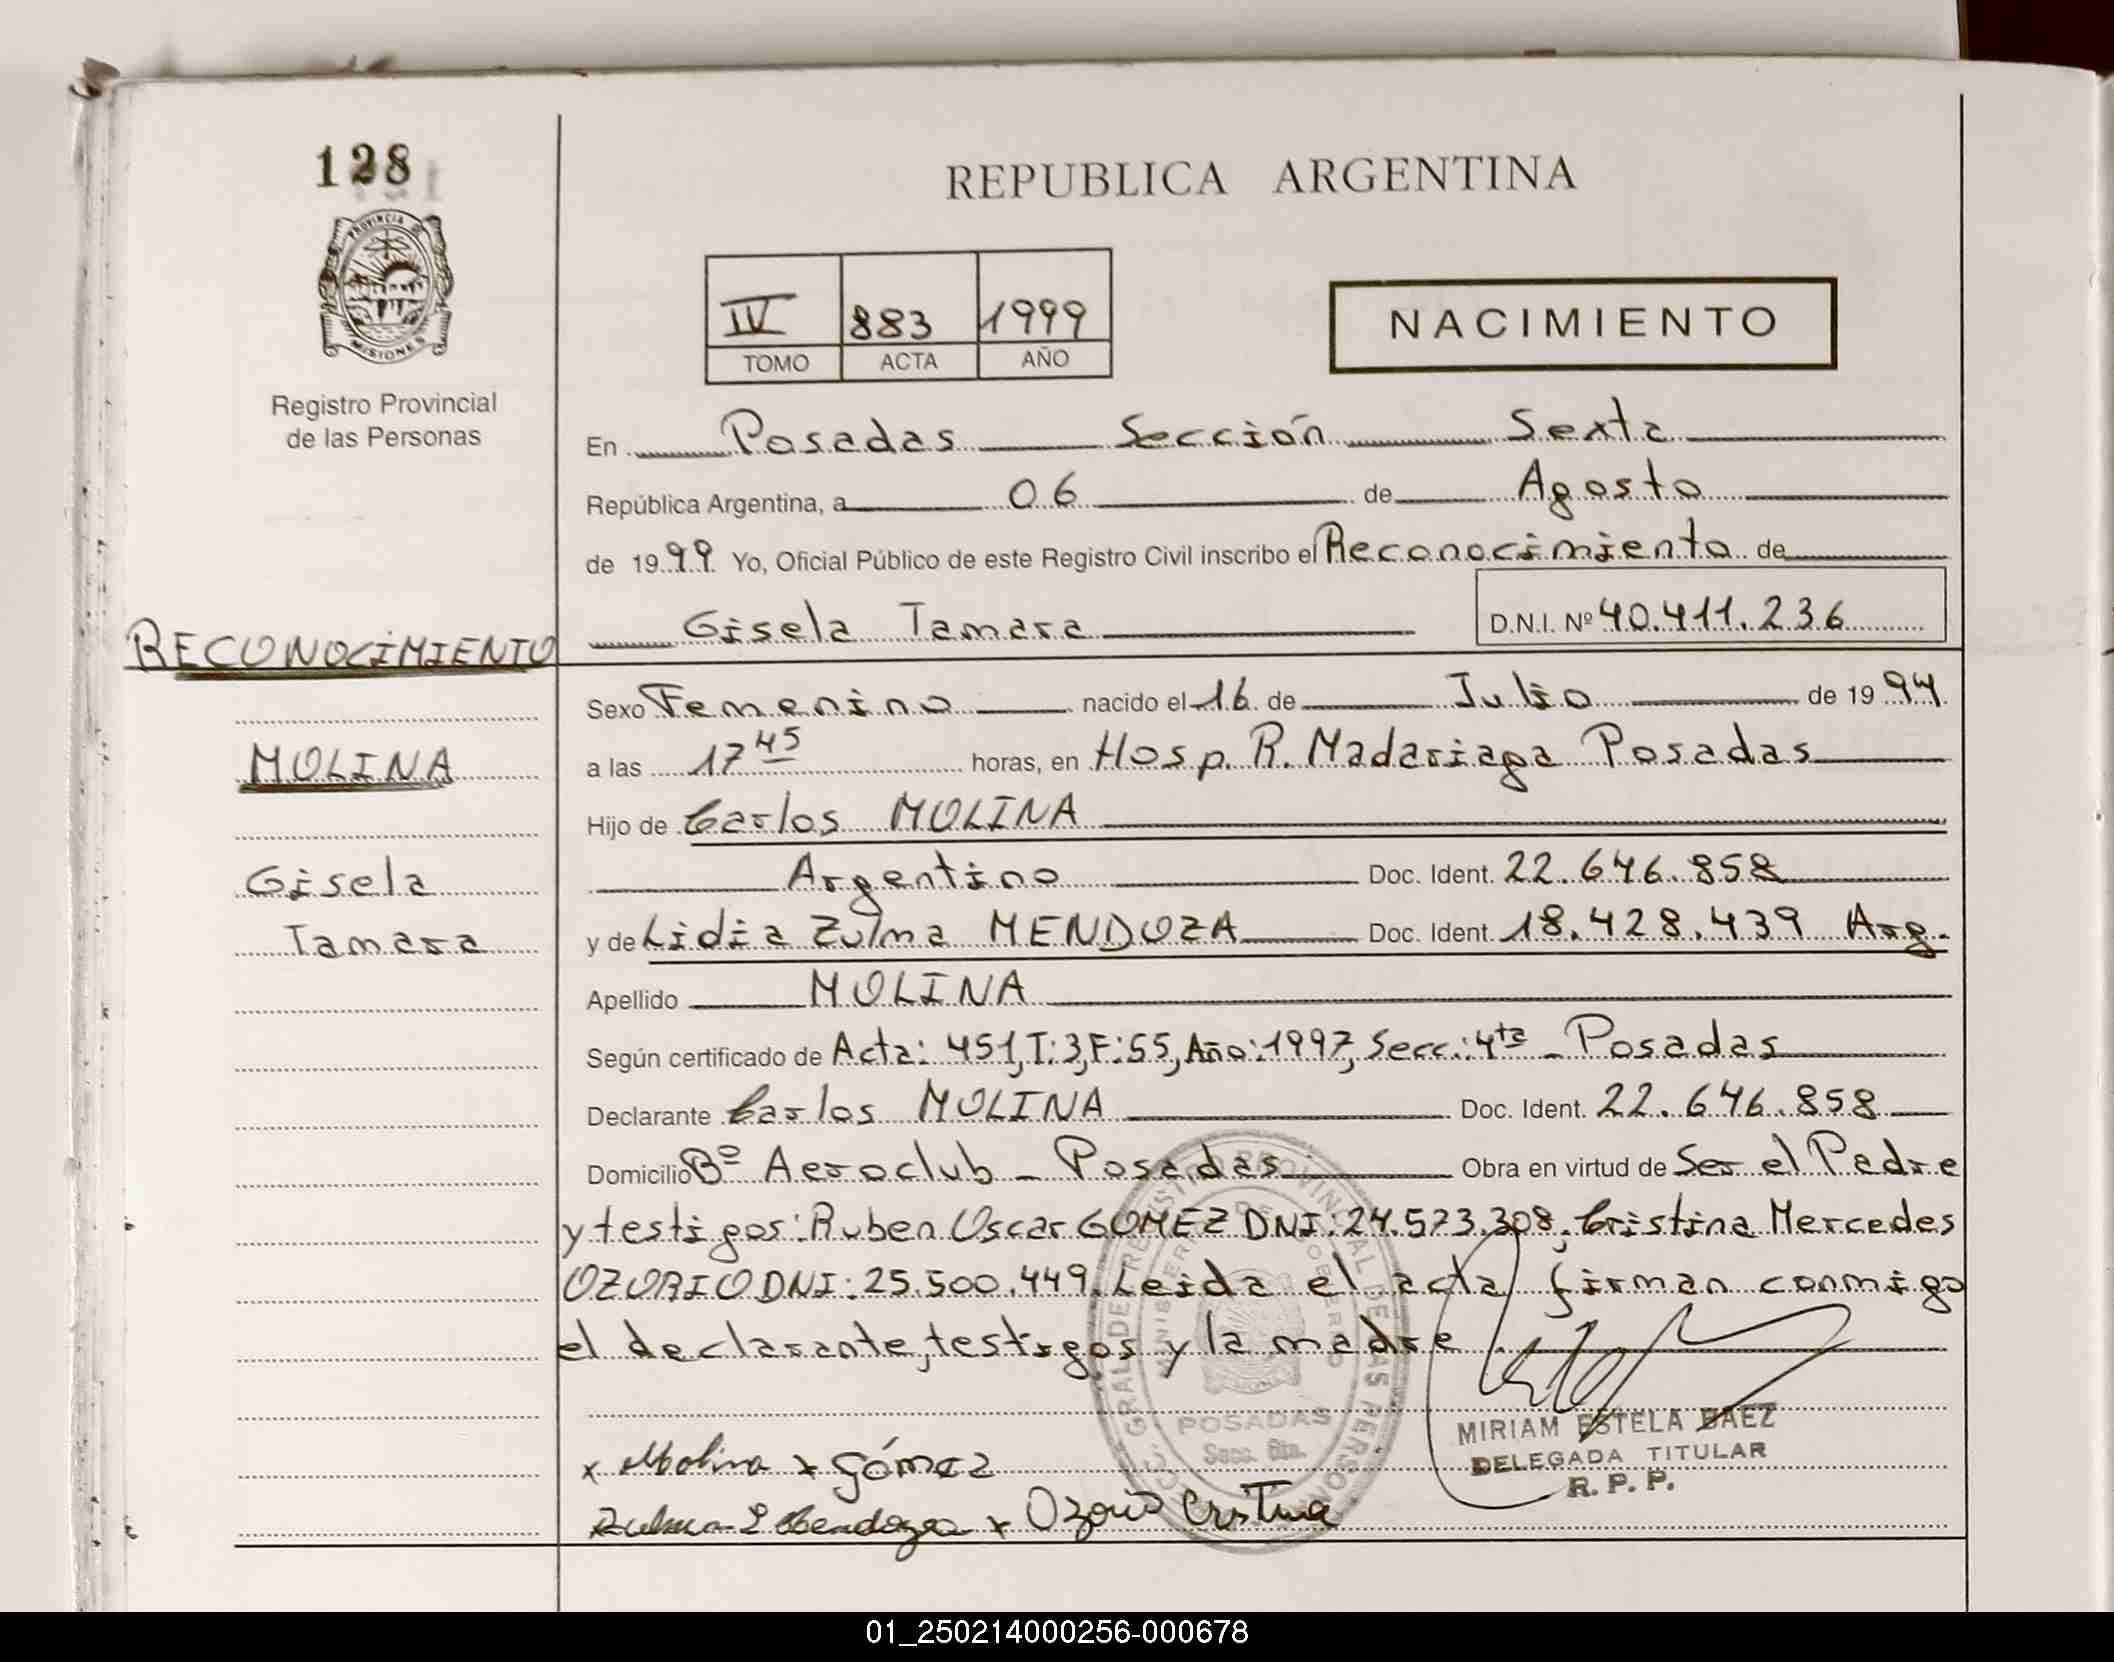 128
PROVINCIA DE
MISIONES
Registro Provincial
de las Personas
REPUBLICA ARGENTINA
IV 883 1999
TOMO ACTA AÑO
NACIMIENTO
En Posadas Sección Sexta
República Argentina, a 06 de Agosto
de 1999 Yo, Oficial Público de este Registro Civil inscribo el Reconocimiento de
Gisela Tamara D.N.I. Nº 40.411.236
RECONOCIMIENTO
MOLINA
Gisela
Tamara
Sexo Femenino nacido el 16 de Julio de 1994
a las 17 45 horas, en Hosp. R. Madariaga Posadas
Hijo de Carlos MOLINA
Argentino Doc. Ident. 22.646.858
y de Lidia Zulma MENDOZA Doc. Ident. 18.428.439 Arg.
Apellido MOLINA
Según certificado de Acta: 451, T:3, F:55, Año:1997, Secc.:4ta - Posadas
Declarante Carlos MOLINA Doc. Ident. 22.646.858
Domicilio Bº Aeroclub - Posadas Obra en virtud de Ser el Padre
y testigos: Ruben Oscar GOMEZ DNI: 24.573.308. Cristina Mercedes
OZORIO DNI: 25.500.449. Leida el acta firman conmigo
el declarante, testigos y la madre
POSADAS
Secc. 6ta.
MIRIAM ESTELA BAEZ
DELEGADA TITULAR
R. P. P.
x Molina x Gómez
x Zulma L Mendoza x Ozorio Cristina
01_250214000256-000678